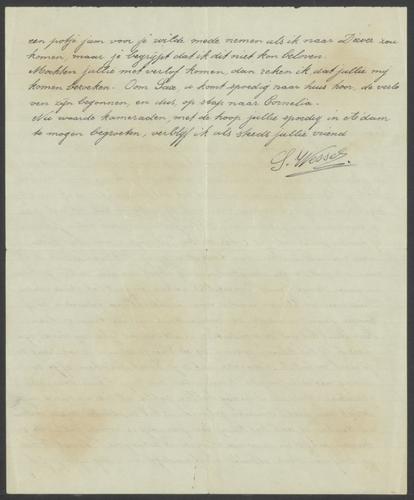 een potje jam voor je wilde mede nemen als ik naar Diever zou
komen, maar je begrijpt dat ik dit niet kon beloven.
Mochten jullie met verlof komen, dan reken ik dat jullie my
komen bezoeken. Oom Saxe, u komt spoedig naar huis hoor, de verlo
ven zijn begonnen, en dus, op stap naar Cornelia.
Nu waarde kameraden, met de hoop jullie spoedig in A'dam
te mogen begroeten, verblijf ik als steeds jullie vriend
S. Wessel.